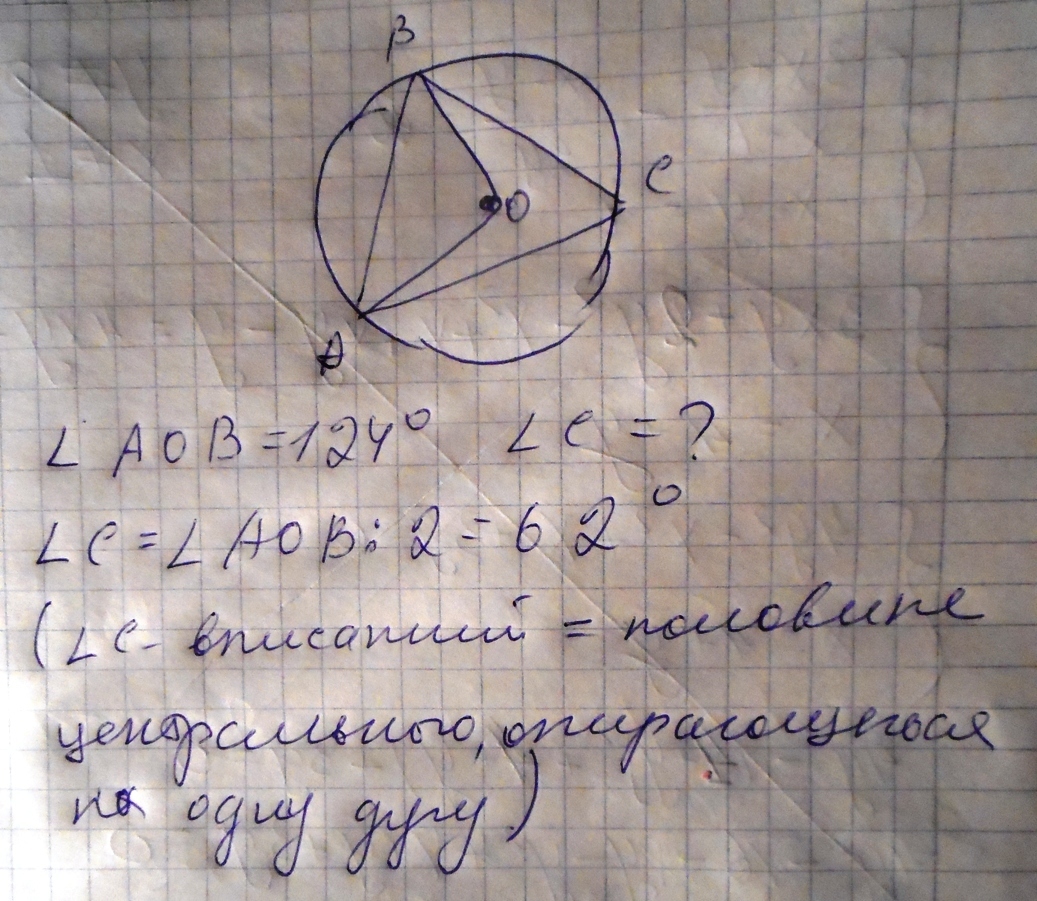 B
O
C
A
∠ AOB = 124° ∠ C = ?
∠ C = ∠ AOB : 2 = 62°
(∠ C - вписаний = половине
центрального, опирающегося
на одну дугу)